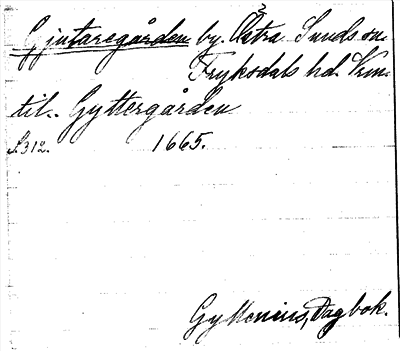 Gjutaregården by. Östra Sunds sn.
Fryksdals hd. Vrm.
til.. Gyttergården
S. 312. 1665.
Gyllenius, Dagbok.